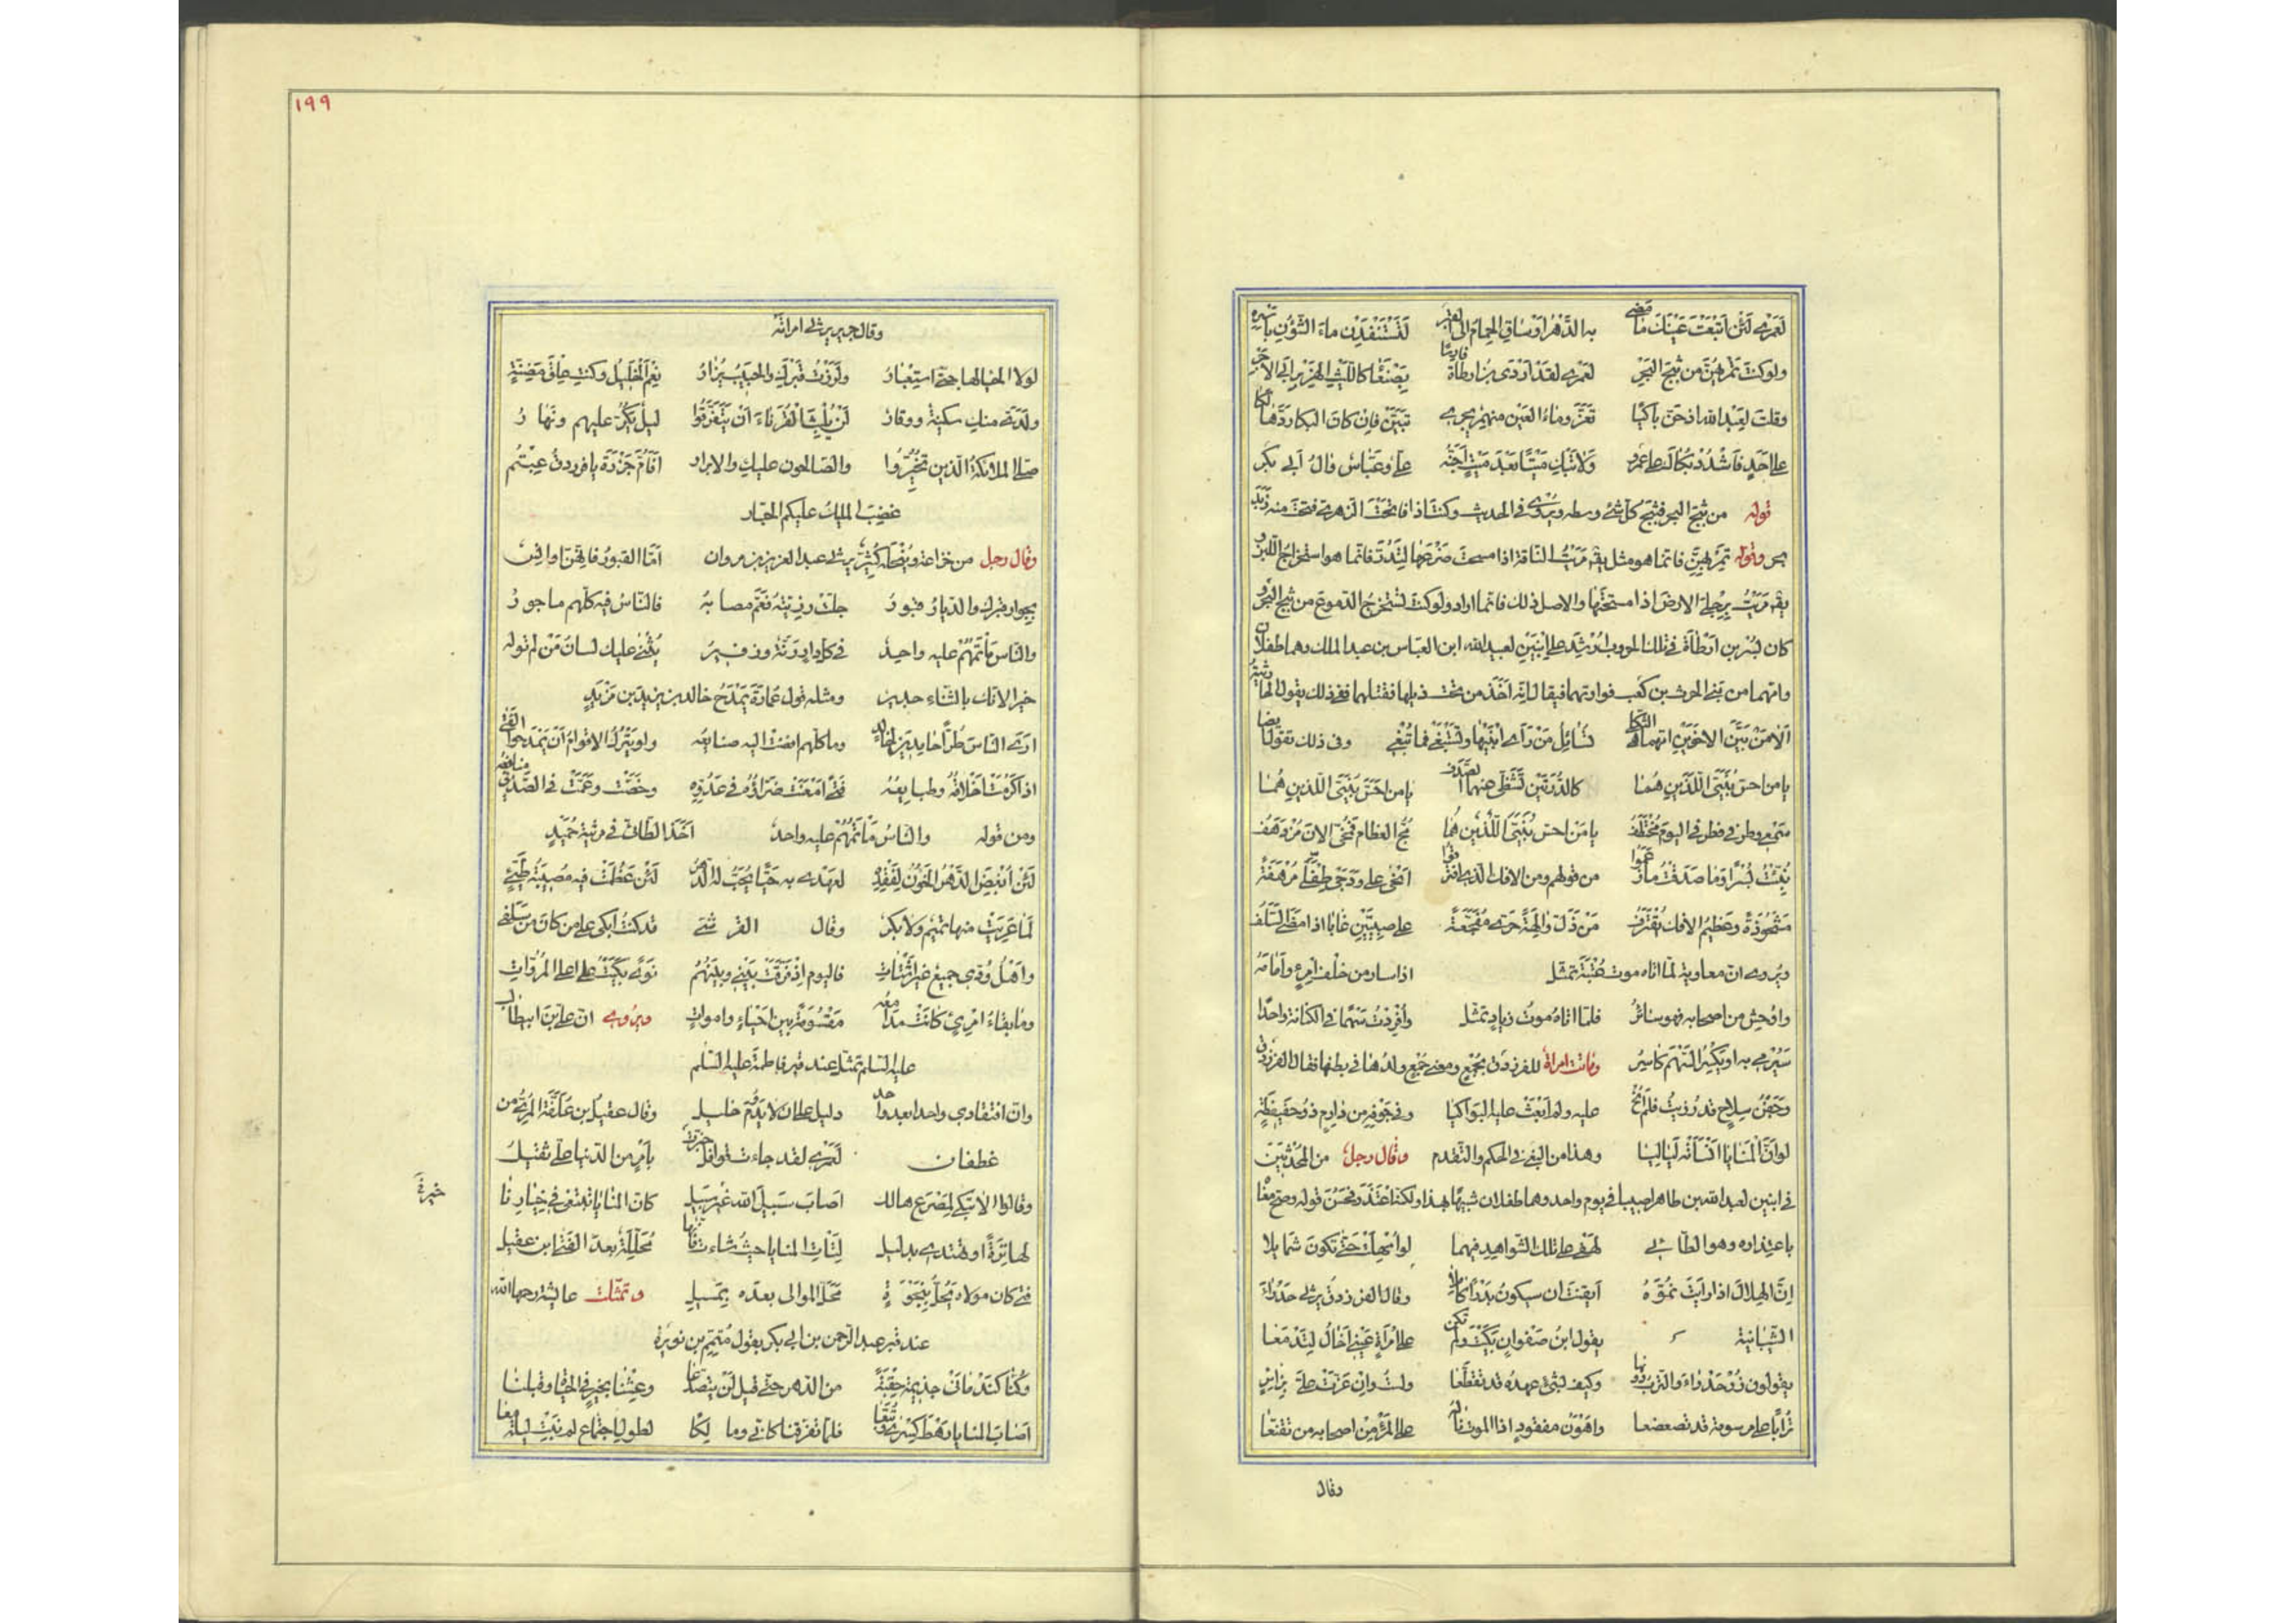 لَعَمْرِي لَئِنْ اَتْبَعْتَ عَيْنَكَ مَا مَضٰى به الدَّهْرُ اَوْسَاقَ الحِمَامَ الى القَبْرِ لَتَسْتَنْفِدَنْ مَاءَ الشُّؤُنِ بِاَسْرِهِ
ولوكنتَ تَمْرِيهُنَّ من ثَبَجِ البَحْرِ لعمرى لقد اَرْدَى بْنُ ارطاةَ فارسًا بِصَنْعَا كاللَّيْثِ الهِزَبْرِ اَبى الاَجْرِ
وقلتُ لِعَبْدِ الله اذ حَنَّ باكيًا تَعَزَّ وماءُ العَيْنِ منهمرٌ يجرى تبيَّنْ فاِن كانَ البكا رَدَّ هالكا
على اَحَدٍ فاَشْدُدْ بُكَاكَ على عَمْرو وَلا تَبْكِ مَيْتًا بَعْدَ مَيْتٍ اَجَنَّهُ علىٌ وعَبّاسٌ وآلُ اَبى بكر
قوله من ثبج البحر فثبج كل شئ وسطه ويُروى فى الحديث وكنتُ اذا فاتحتُ الزهرى فتحتُ منه ثَبَجَ
بحر وقوله تمريهنّ فانما هو مثل يقٰ مَرَيْتُ الناقة اذا مسحتَ ضَرْعَها لِتَدُرَّ فانما هو استخراج اللبن و
يقٰ مَرَيْتُ برِجْلى الارضَ اذا مسحتَها والاصل ذلك فانما اراد ولوكنت تستخرج الدموع من ثبج البحر و
كان بُسْر بن اَرْطاةَ فى تلك الحروب اُرْشِدَ على ابْنَيْن لعبيد الله ابن العباس بن عبد الملك وهما طفلان
وامّهما من بنى الحرث بن كعب فوارتهما فيقال انّه اَخَذَ من تحت ذيلها فقتلهما ففى ذلك يقول الحارثية
اَلا مَنْ بَيَّنَ الاخَوَيْنِ امّهما هى الثكلى تُسَائِلُ مَنْ رَأى ابْنَيْها وتَسْتَبْغى فما تُبْغى وفى ذلك تقول ايضا
يا من احسَّ بُنَيَّىَّ اللّذَيْنِ هُمَا كالدُّرَّتَيْنِ تَشَظَّى عنهما الصدف يا من احسَّ بُنَيَّىَّ اللذين هُمَا
سمعى وطرفى فطرفى اليوم مُختطَفُ يا مَن احسَّ بُنَيَّىَّ اللّذَيْنِ هُمَا مُخّ العظام فَمُخّى الانَ مُزْدَهَفُ
نُبِّئْتُ بُسْرًا وَمَا صدّقتُ ما زَعموا من قولهم ومن الافك الذى اقترفوا اَنْحى على وَدَجَىْ طِفْلَىَّ مُرْهَفَةً
مَشحُوذَةً وعَظيمُ الافك يُقْتَرَفُ مَنْ دَلَّ والِهَةً حَرّى مُفَجَّعَةً على صبيَّيْن غابا اذا مضى السّلَفُ
ويروى انّ معاوية لمّا اتاه موت عُتْبَةَ تمثل اذا سار من خلف امرءٍ وَاَمَامَهُ
واوحش من اصحابه فهو سائرُ فلمّا اتاهُ موتُ زيادٍ تمثل وأُفْرِدْتُ سَهْمًا فى الكنانة واحدًا
سَيُرْمى به او يَكْسِرُ السَّهْمَ كاسِرُ وماتت امراة للفرزدق بجُمْعٍ ومعنى جُمْعٍ ولدُها فى بطنها فقال الفرزدق
وجَفْنِ سِلاحٍ قد رُزِئتُ فلم اَنُحْ عليه ولم اَبْعَثْ عليه البَواكيا وفى جَوْفِهِ من دارِمٍ ذو حَفيظَةٍ
لَوْ اَنَّ الْمَنَايا اَنْسَاَتْهُ لَيَالِيَا وهذا من البغى فى الحكم والتقدم وقال رجلٌ من المُحْدَثين
فى ابنين لعبد الله بن طاهر اصيبا فى يوم واحد وهما طفلان شبيهًا بهذا ولكنّه اعتذر فحسّن قوله وصحّ معناه
باعتذاره وهو الطائى لهفى على تلك الشواهد فيهما لو اُمْهِلَتْ حتّى تكون شمايلا
اِنَّ الهِلالَ اذا رايتَ نموّهُ اَيقنتَ ان سيكونُ بَدْرًا كاملا وقال الفرزدق يرثى حَدْرَاءَ
الشيبانية يقول ابنُ صفوانٍ بَكَيْتَ ولم تكن على امْراَةٍ عَيْنى اَخَالُ لِتَدْمَعَا
يقولون زُرْ حَدْرَاءَ والتربُ دونها وكيف بشئٍ عهدُهُ قد تقطّعا ولستُ واِن عَزّت علىَّ بزائرٍ
تُرابًا على مرسومة قد تضعضعا واهونُ مفقودٍ اذا الموت ناله على المرءِ مِنْ اصحابه من تقنّعا
وقال
١٩٩
وقال جرير يرثى امراته
لولا الحياءُ لهاجنى استعبارُ ولَزُرْتُ قبركِ والحبيبُ يُزارُ نِعْمَ الخليلُ وكنتِ عِلْقَ مَضِنَّةٍ
ولدىَّ منكِ سكينةٌ ووقارُ لَنْ يُلْبِثَ القُرَنَاءَ اَنْ يَتَفَرَّقُوا ليلٌ يَكُرُّ عليهم ونهارُ
صلّى الملائكةُ الّذين تُخُيِّرُوا والصّالحون عليكِ والابرار اَفَاُمَّ حَزْرَةَ يا فرزدقُ عِبْتُم
غضِبَ المليكُ عليكم الجبّار
وقال رجل من خزاعة ويُنْحَلُه كُثَيِّر يرثى عبد العزيز بن مروان اَمَّا القبورُ فانهنَّ اَوانِسٌ
بِجِوارِ قبرك والديارُ قبورُ جلّتْ رزيّتهُ فعَمَّ مصابُهُ فالنّاسُ فيه كلّهم ماجورُ
والناس مأتمُهُم عليه واحدٌ فى كل دارٍ رنّةٌ وزفيرٌ يُثْنى عليك لسانُ مَنْ لم تُولِه
خيرًا لانك بالثناء جدير ومثله قول عمارة يمدح خالد بن يزيد بن مَزْيَدٍ
ارى الناس طُرًّا حامدين لخالدٍ وما كلّهم افضت اليه صنايعه ولن يترك الاقوامُ اَن يَمدحوا الفتى
اذا كَرُمَتْ اَخْلاقُهُ وطبايعُهُ فتًى امعنت ضرّاؤُه فى عَدُوِّه وخصّت وعمّت فى الصّديق منافعه
ومن قوله والناسُ مأتمُهُم عليه واحدٌ اَخَذَ الطائى فى مرثية حُمَيْدٍ
لَئِن اُبْغِضَ الدَّهْرُ الخَؤُنُ لِفَقْدِهِ لعهدى به حَيًّا يُحَبُّ له الدَّهرُ لَئِن عَظُمَتْ فيه مُصِيبَةُ طَيِّئٍ
لَمَا عَرِيَتْ منها تميم ولا بكر وقال القرشى قد كنتُ ابكى على من كان من سَلَفى
واَهْلُ وُدّى جميعٌ غيرُ اَشْتَاتِ فاليوم اِذْ فَرَّقَتْ بَيْنى وبينهُمُ نوًى بَكَيْتُ على اهل المُرُوّاتِ
وما بقاءُ امْرِئٍ كانتْ مدامعُه مَقْسُومَةً بين احْيَاءٍ واموات ويروى انّ علىّ بن ابيطالب
عليه السّلم تمثّل عند قبر فاطمة عليه السّلم
وانّ افتقادى واحدا بعد واحد دليل على ان لا يدُومَ خليل وقال عقيل بن عُلَّفَةَ المُرّىُّ من
غطفان لَعَمْرى لقد جاءت قوافل خبّرت باَمْرٍ من الدنيا علىَّ ثقيلُ
وقالوا الا تبكى لِمَصْرَعِ هالك اصابَ سَبيلَ الله خيرَ سَبيل كانّ المنايا تبتغى فى خِيَارِنا
خيرُ فتًى
لها تِرَةً او تهتدى بدليل لِتَاْتِ المنايا حيثُ شاءت فانها مُحَلَّلَةٌ بعدَ الفتى ابن عقيل
فتى كان مولاه يَحُلُّ بِنَجْوَةٍ فحَلَّ الموالى بعدَه بِمَسِيل وتمثّلت عايشة رحمها الله
عند قبر عبد الرّحمن بن ابى بكر بقول مُتَمِّم بن نويرة
وكُنّا كَنَدْمانَىْ جذيمة حِقْبَةً من الدهر حتى قيل لَنْ يتصدّعا وعِشْنَا بخيرٍ فى الحيٰوة وقبلنا
اَصَابَ المنايا رهْطَ كِسْرى وتُبَّعَا فلمّا تفرّقنا كانّى ومالكًا لطول اجتماع لم نَبِتْ ليلةً معا